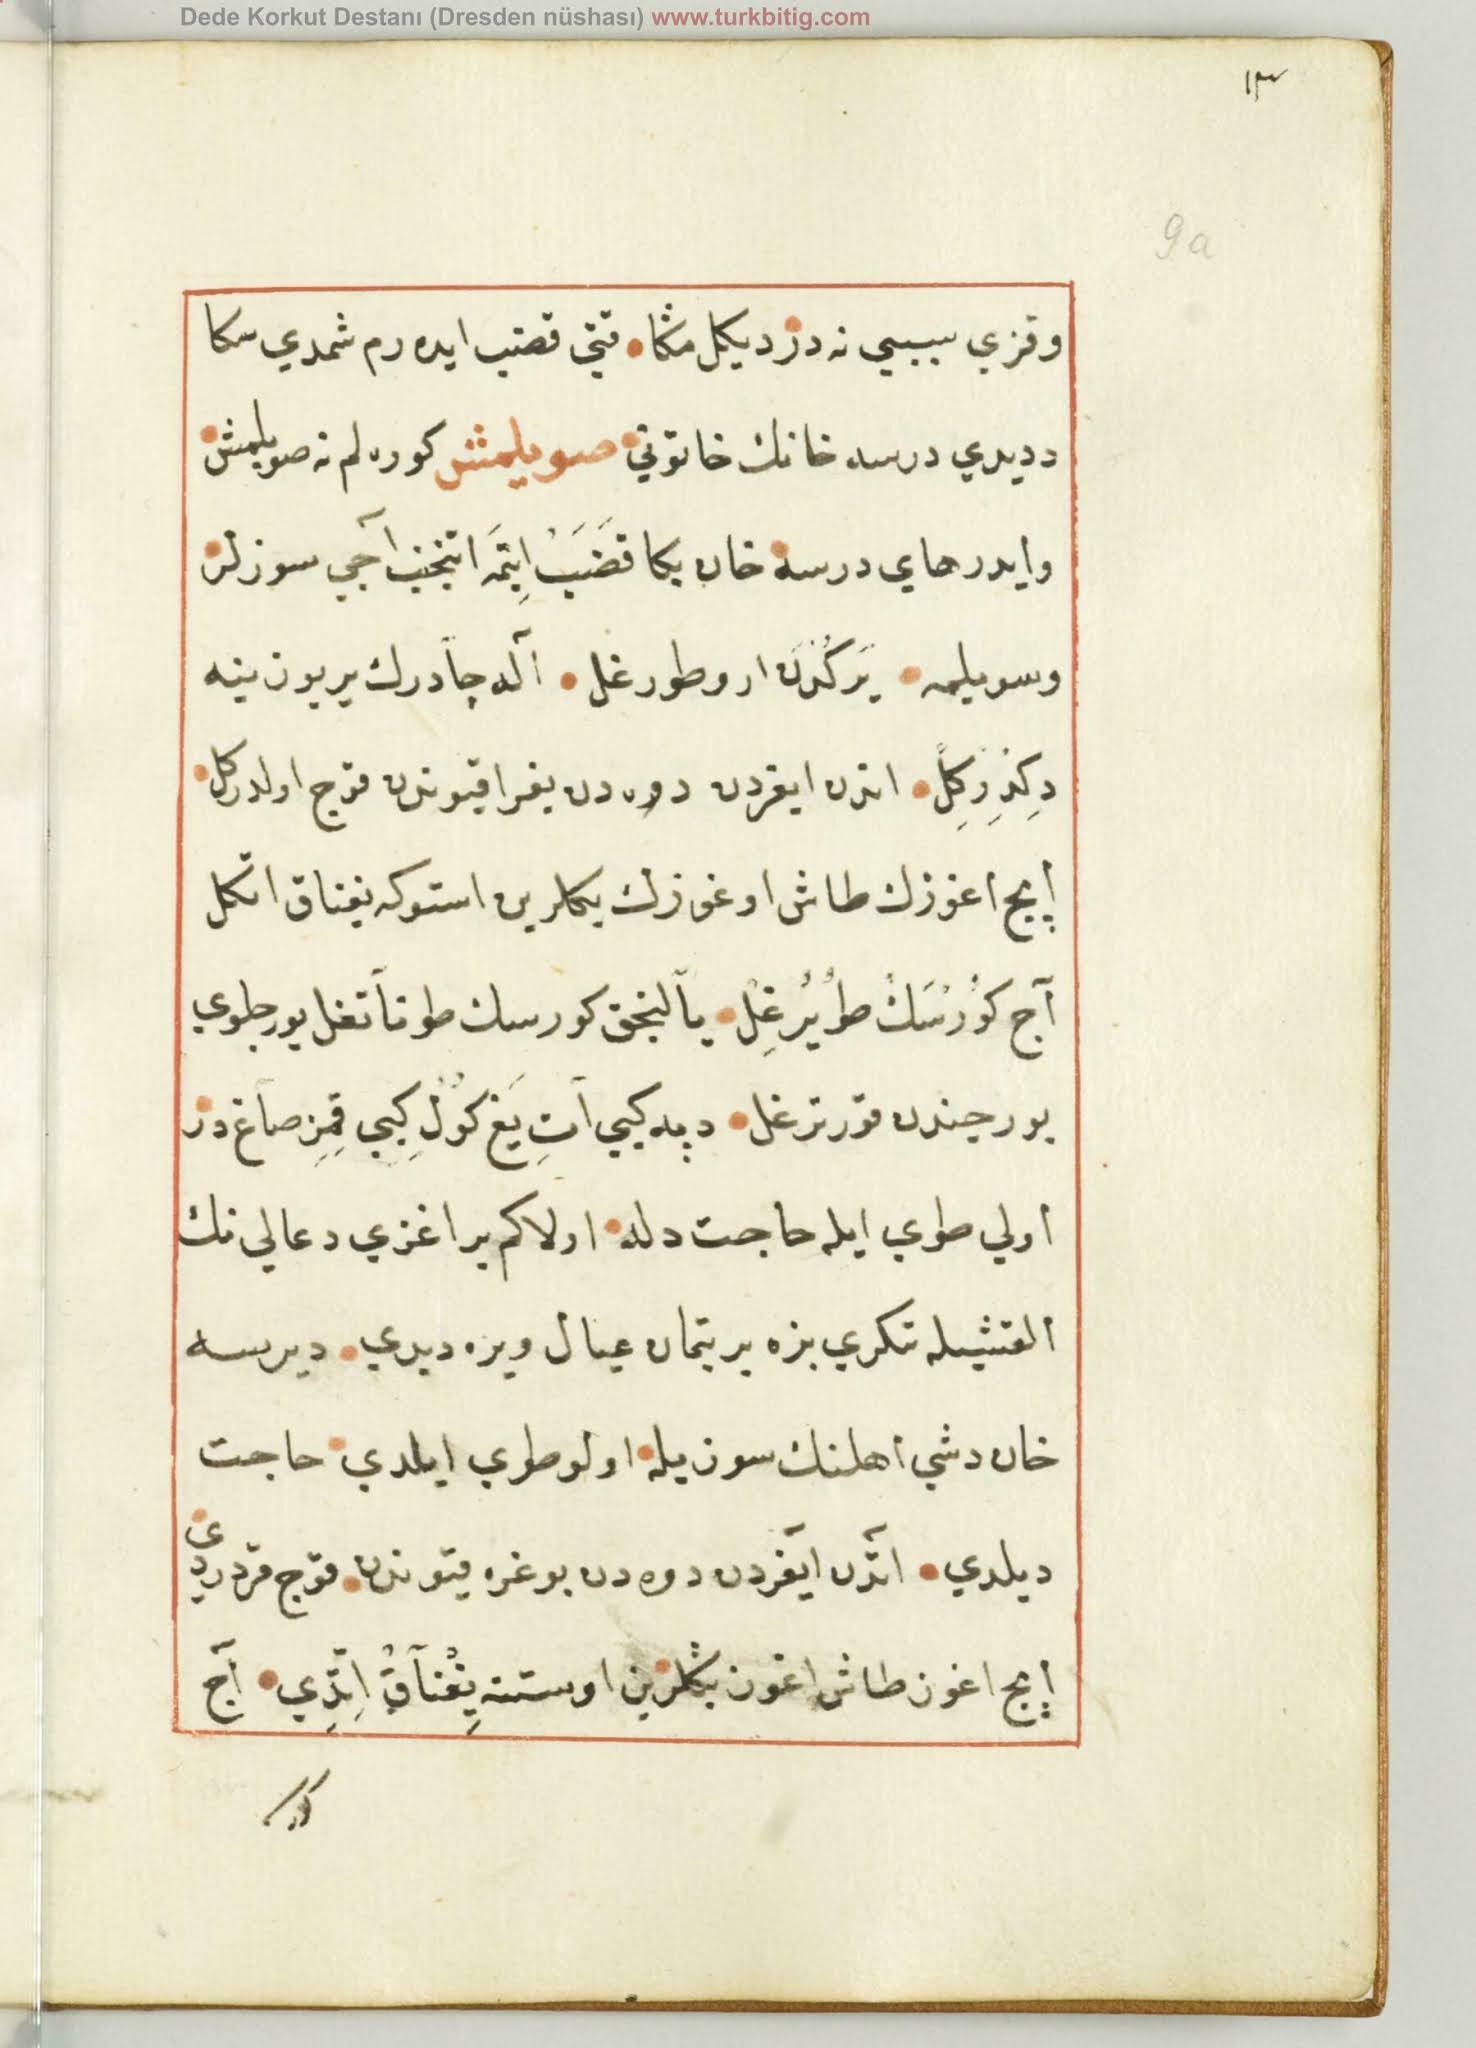 Dede Korkut Destanı (Dresden nüshası) www.turkbitig.com
١٣
9a
وقزي سببي نه در ديكل مڭا قتي قضب ايده رم شمدي سكا
دديدي درسه خانك خاتوني صويلمش كوره لم نه صويلمش
وايدر هاي درسه خان بكا قَضَبْ اِيتْمَه اتنجنب آجي سوزلر
وسويلمه يَركُندَن ارو طورغل آله چادرك ير يوزينه
دِكْدِرْكِلْ اتدن ايغردن دوه دن بغرا قيوندن قوج اولدركل
اِيچ اغوزك طاش اوغوزك بكلرين استوكه يغناق اتكل
آج كوُرْسَكْ طُويُرْغِلْ يآلنجق كورسك طوناتغل بورجلوي
بورجندن قورترغل دپه كبي اَتِ يَغ كُولِ كبي قِمِز صاغ در
اولي طوي ايله حاجت دله اولاكم بر اغزي دعالي نك
القشيله تكري بزه بر يتمان عيال ويره ديدي ديرسه
خان دشي اهلنك سوزيله اولو طوي ايلدي حاجت
ديلدي اتدن ايغردن دوه دن بوغره قيوندن قوج قردردي
اِيچ اغوز طاش اغوز بڭلرين اوستنه يِغْنآقْ اِتْدِي آج
كور